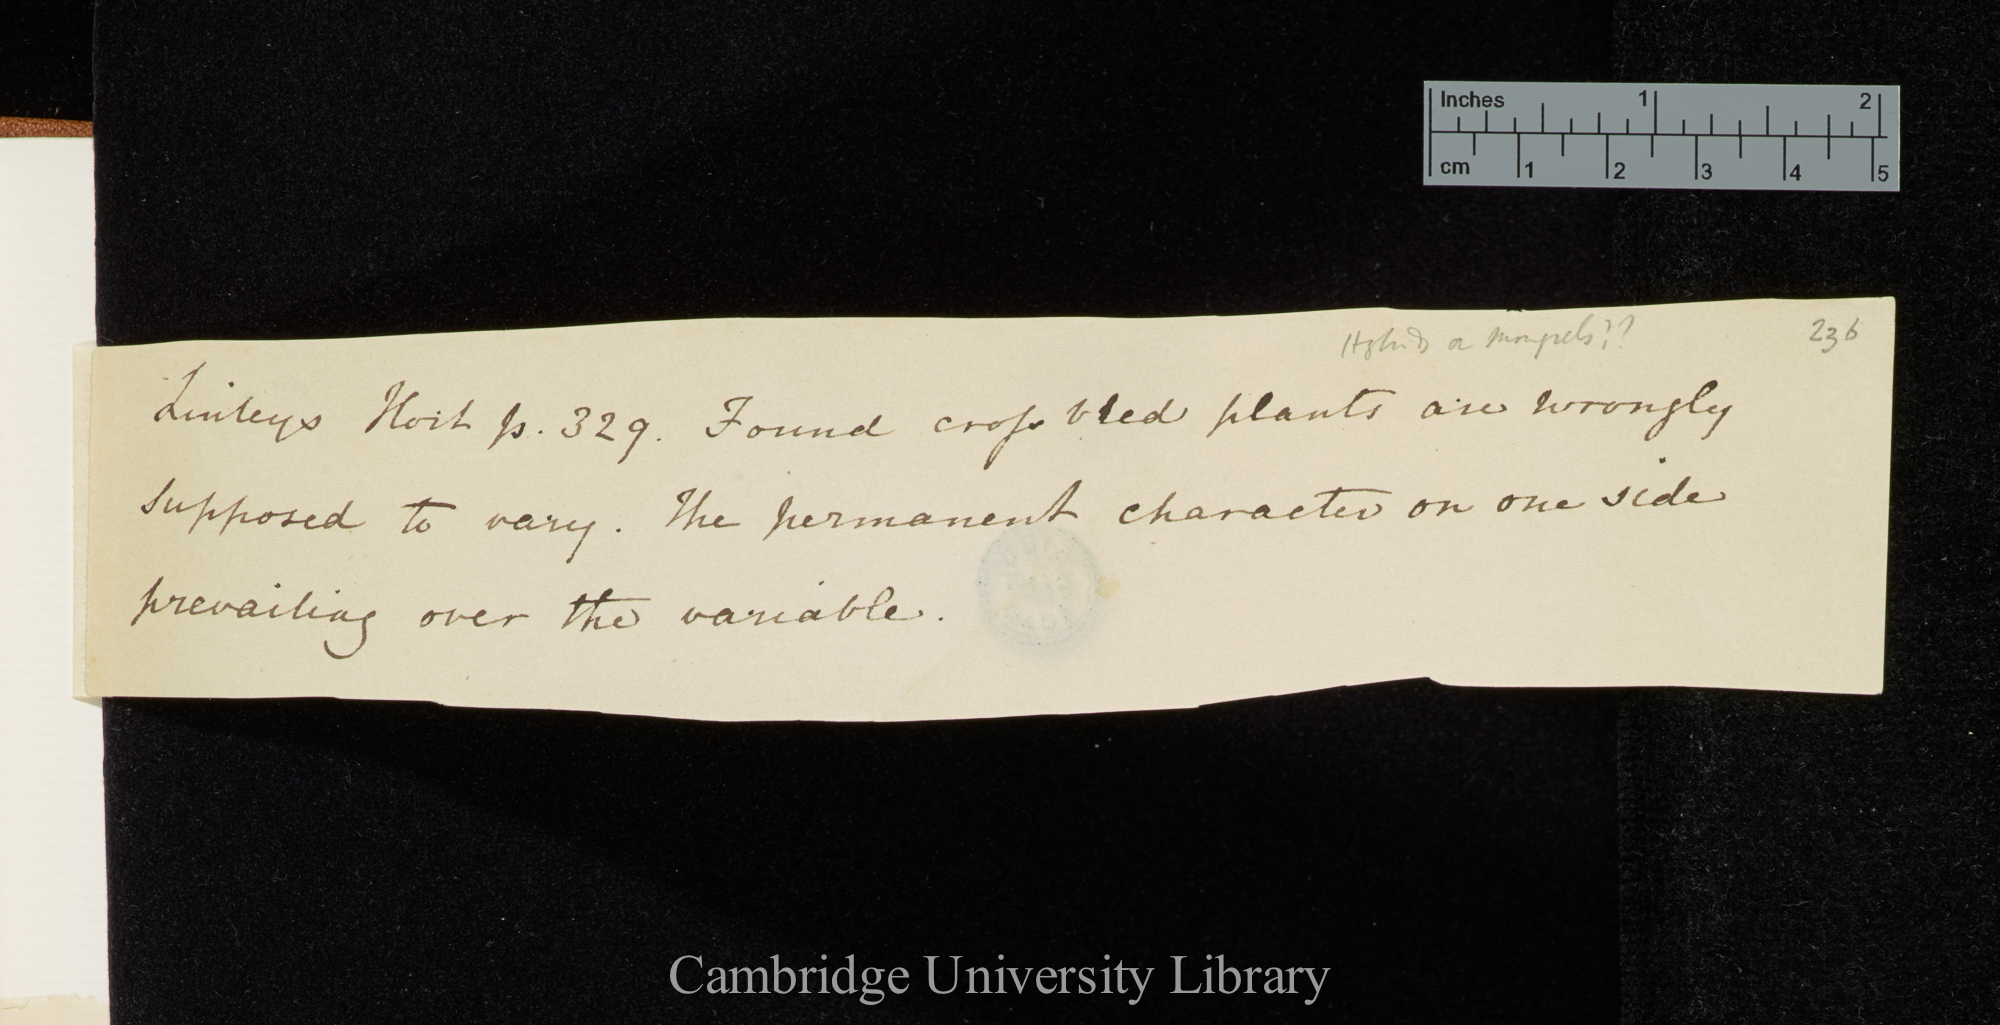 Inches 1 2
cm 1 2 3 4 5
Hybrids or Mongrels?? 236
Linleys Hort p. 329. Found cross bred plants are wrongly
supposed to vary. The permanent character on one side
prevailing over the variable.
Cambridge University Library